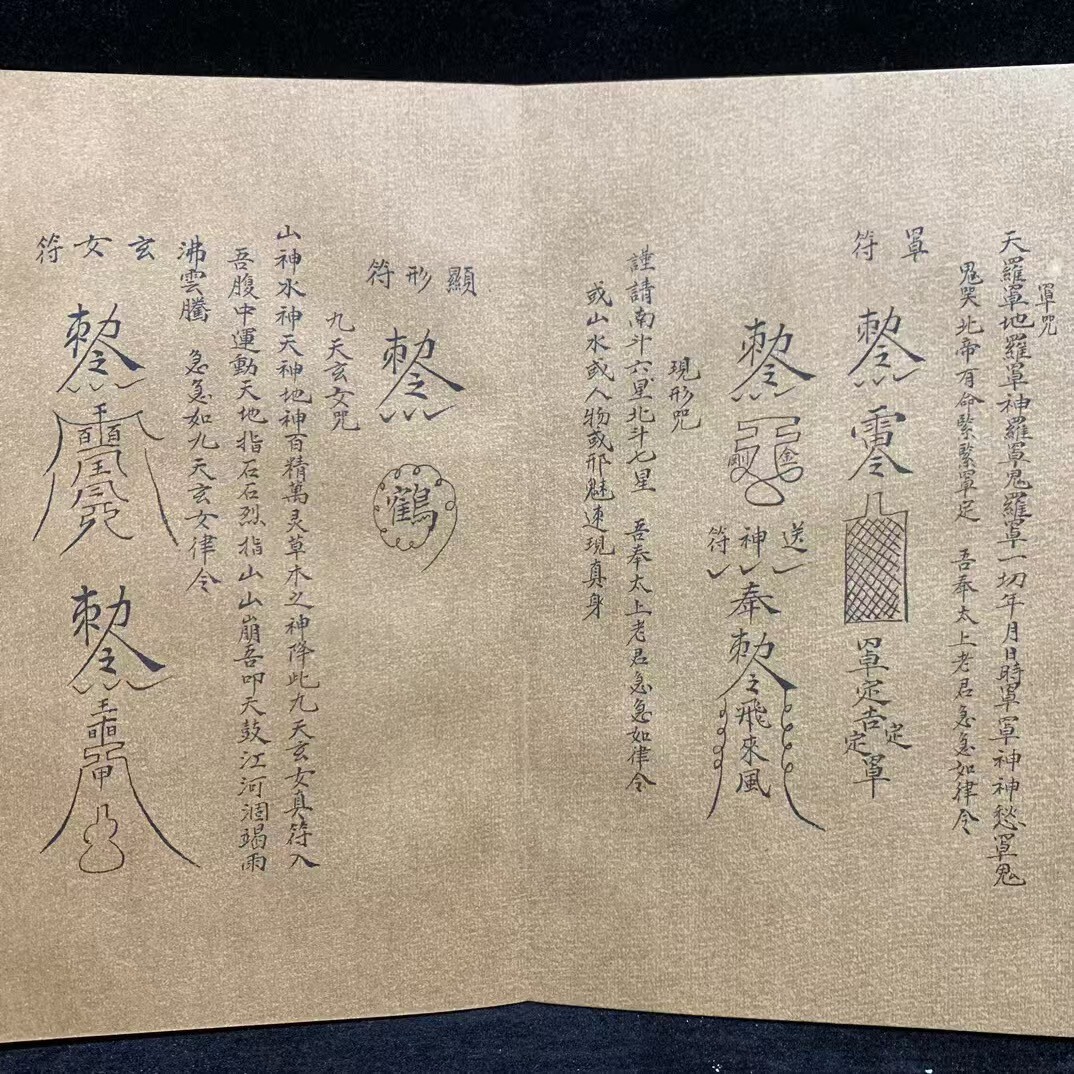 罩咒
天羅罩地羅罩神羅罩鬼羅罩一切年月日時罩罩神神愁罩鬼
鬼哭北帝有命緊緊罩定 吾奉太上老君急急如律令
罩符
勅令
雷令
罩定吉定定罩
勅令
剛金
送神符
奉勅令飛來風
現形咒
謹請南斗六星北斗七星 吾奉太上老君急急如律令
或山水或人物或邢魅速現真身
顯形符
勅令
鶴
九天玄女咒
山神水神天神地神百精萬灵草木之神降此九天玄女真符入
吾腹中運動天地指石石烈指山山崩吾叩天鼓江河涸竭雨
沸雲騰 急急如九天玄女律令
玄女符
勅令
勅令
甲